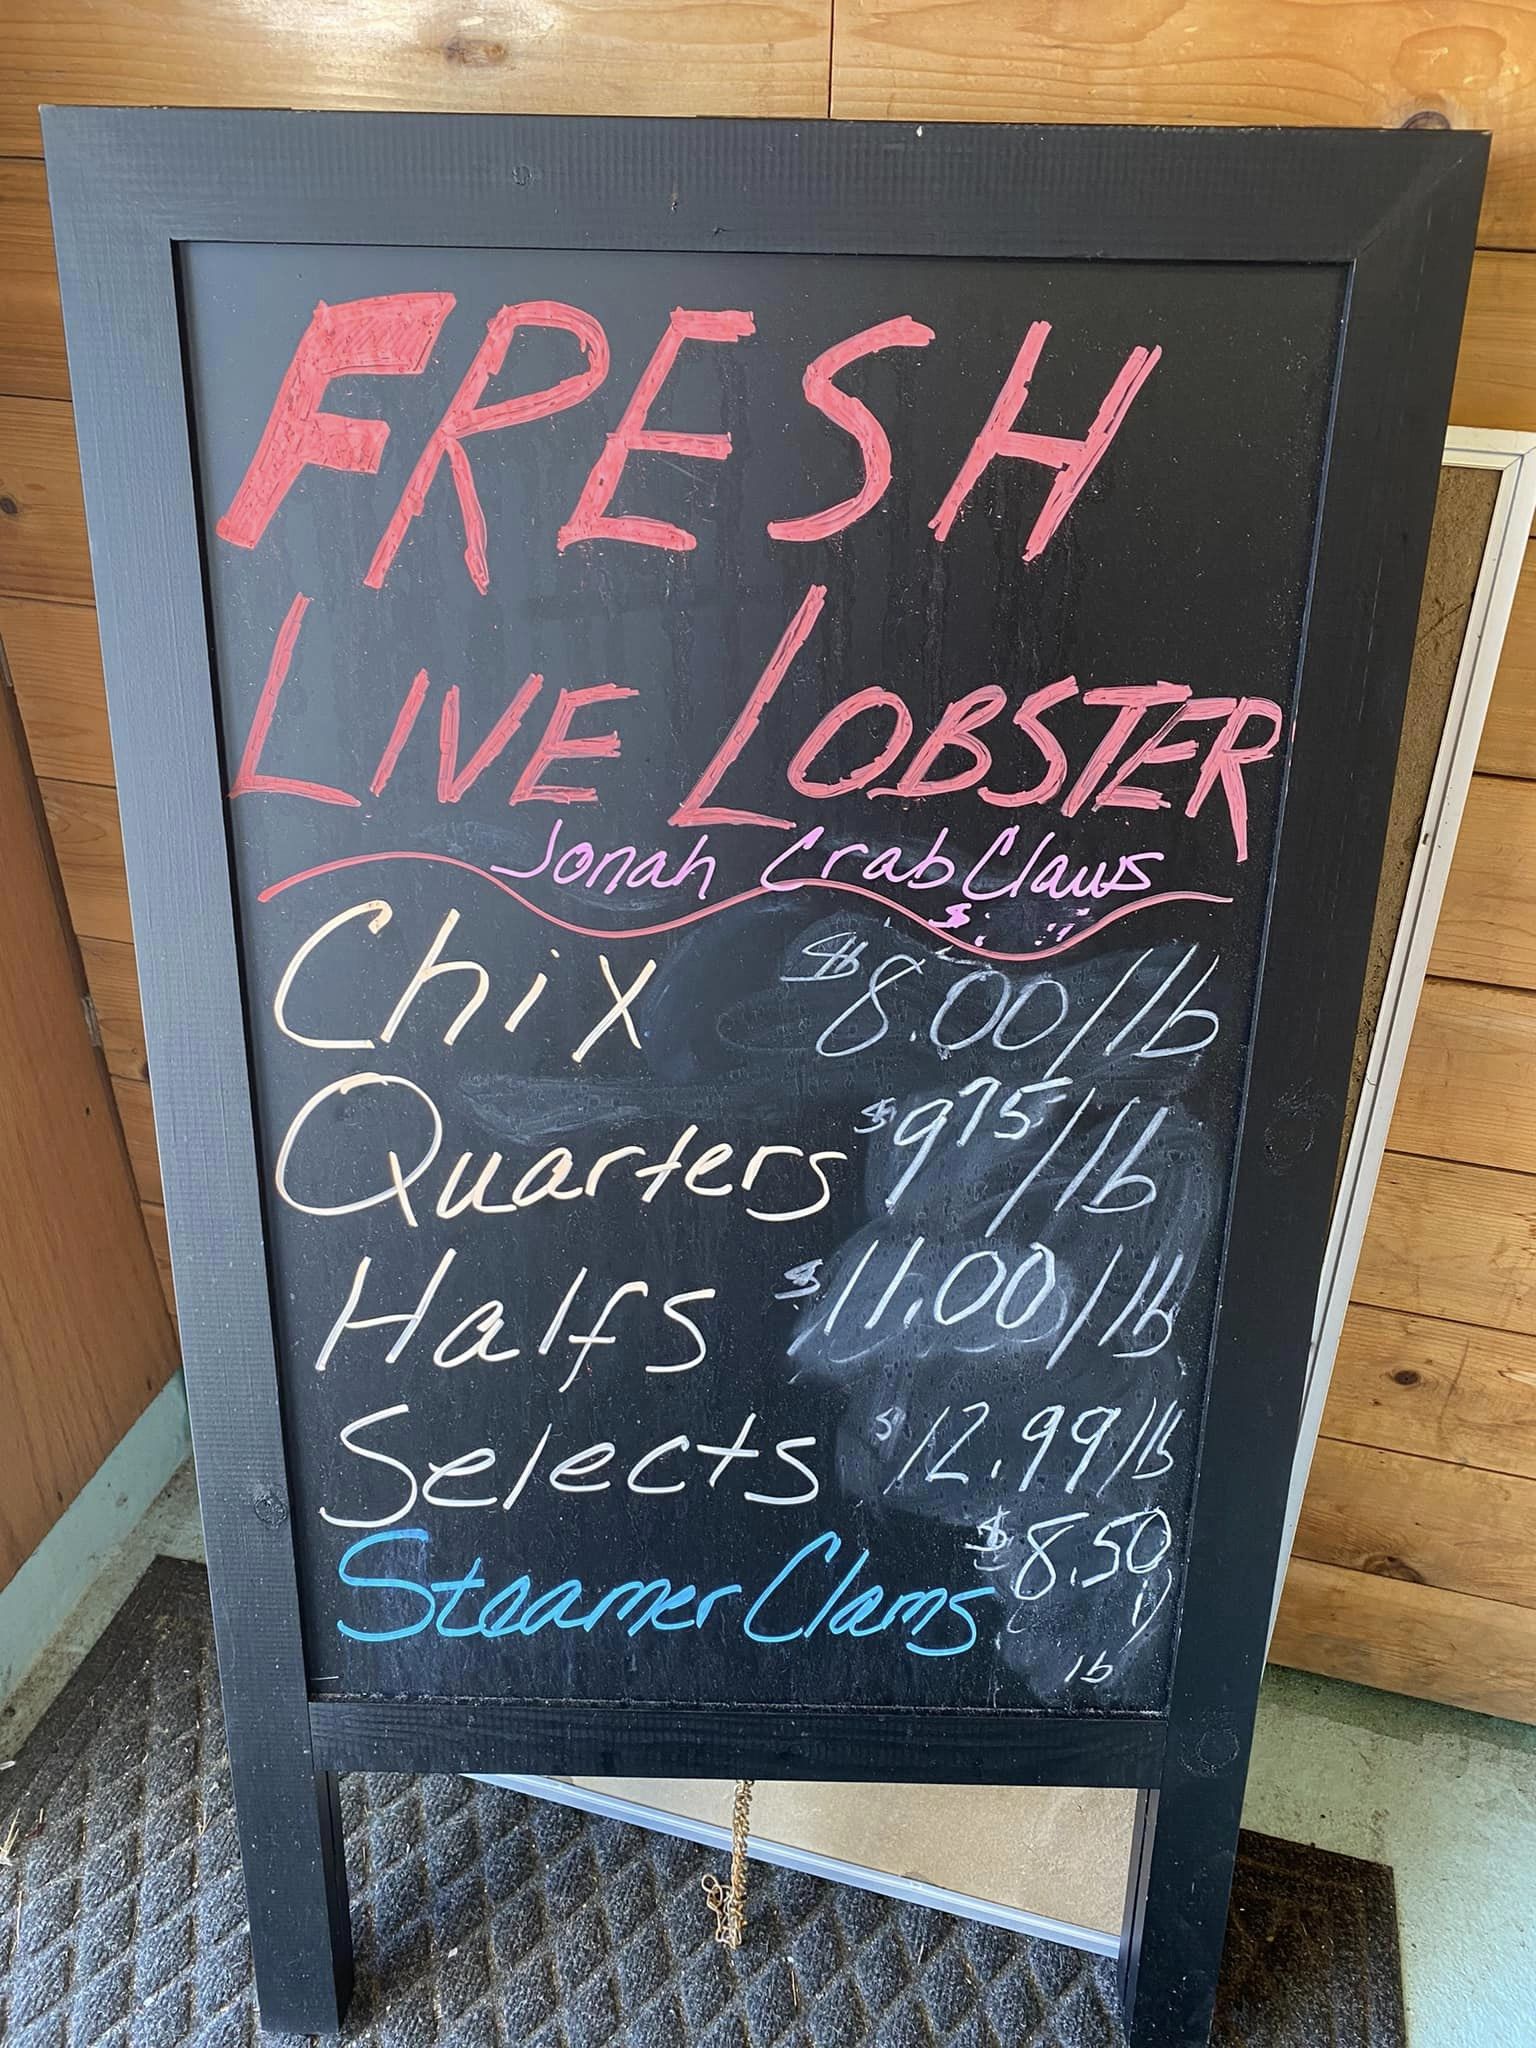 FRESH
LIVE LOBSTER
Jonah Crab Claws
Chix $8.00/lb
Quarters $9.75/lb
Halfs $11.00/lb
Selects $12.99/lb
Steamer Clams $8.50
lb